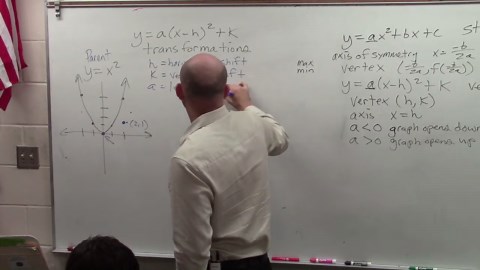 y = a(x-h)² + k
transformations
h =
k =
a =
Parent
y = x²
(2,1)
max
min
y = ax² + bx + c
axis of symmetry x = -b/2a
vertex (-b/2a, f(-b/2a))
y = a(x-h)² + k
vertex (h, k)
axis x = h
a < 0 graph opens down
a > 0 graph opens up